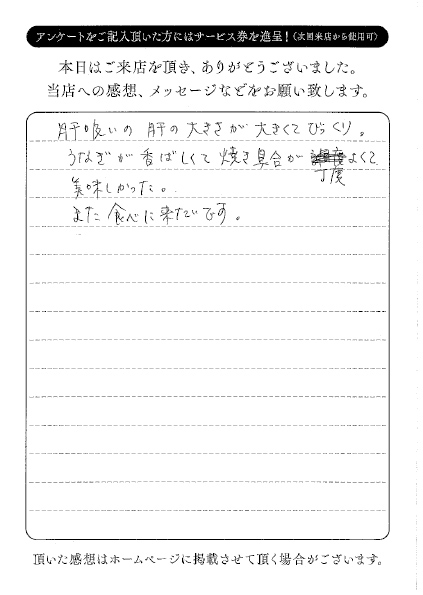 アンケートをご記入頂いた方にはサービス券を進呈！（次回来店から使用可）
本日はご来店を頂き、ありがとうございました。
当店への感想、メッセージなどをお願い致します。
肝吸いの肝の大きさが大きくてびっくり。
うなぎが香ばしくて焼き具合が丁度よくて
美味しかった。
また食べに来たいです。
頂いた感想はホームページに掲載させて頂く場合がございます。